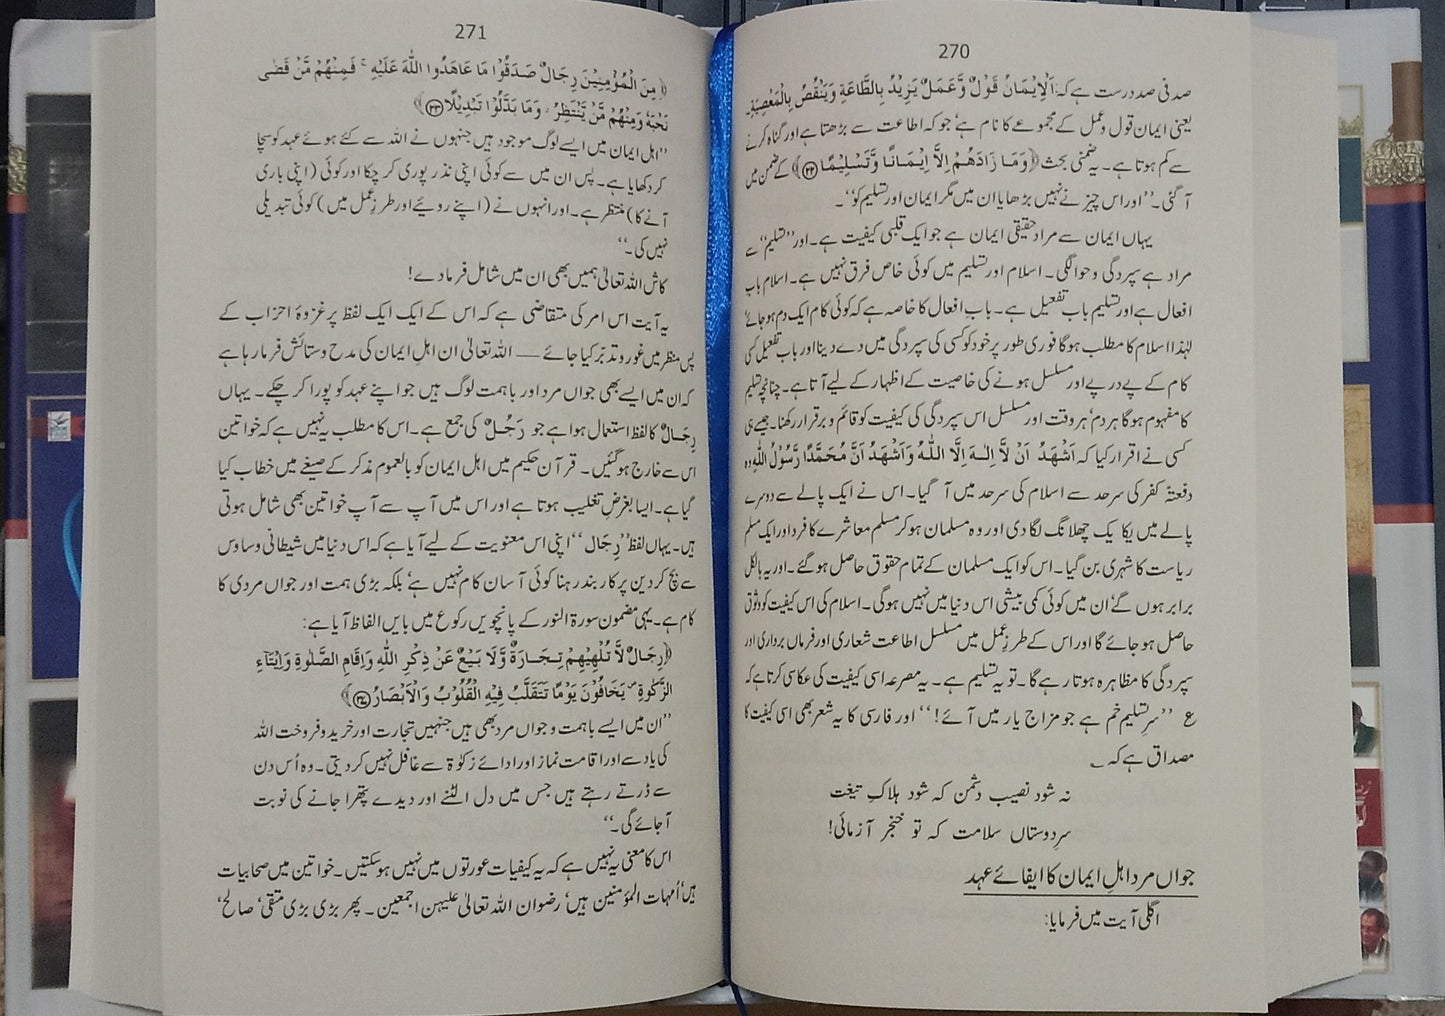 270
صد فی صد درست ہے کہ: اَلْاِیْمَانُ قَوْلٌ وَّعَمَلٌ یَزِیْدُ بِالطَّاعَةِ وَیَنْقُصُ بِالْمَعْصِیَةِ
یعنی ایمان قول و عمل کے مجموعے کا نام ہے‘ جو کہ اطاعت سے بڑھتا ہے اور گناہ کرنے
سے کم ہوتا ہے۔ یہ ضمنی بحث ﴿وَمَا زَادَهُمْ اِلَّآ اِیْمَانًا وَّتَسْلِیْمًا ﴿۲۲﴾﴾ کے ضمن میں
آ گئی۔ ’’اور اس چیز نے نہیں بڑھایا ان میں مگر ایمان اور تسلیم کو‘‘۔
یہاں ایمان سے مراد حقیقی ایمان ہے جو ایک قلبی کیفیت ہے۔ اور ’’تسلیم‘‘ سے
مراد ہے سپردگی و حوالگی۔ اسلام اور تسلیم میں کوئی خاص فرق نہیں ہے۔ اسلام باب
افعال ہے اور تسلیم باب تفعیل ہے۔ باب افعال کا خاصہ ہے کہ کوئی کام ایک دم ہو جائے‘
لہٰذا اسلام کا مطلب ہوگا فوری طور پر خود کو کسی کی سپردگی میں دے دینا اور باب تفعیل کسی
کام کے پے در پے اور مسلسل ہونے کی خاصیت کے اظہار کے لیے آتا ہے۔ چنانچہ تسلیم
کا مفہوم ہوگا ہر دم‘ ہر وقت اور مسلسل اس سپردگی کی کیفیت کو قائم و برقرار رکھنا۔ جیسے ہی
کسی نے اقرار کیا کہ اَشْهَدُ اَنْ لَّا اِلٰهَ اِلَّا اللّٰهُ وَاَشْهَدُ اَنَّ مُحَمَّدًا رَّسُوْلُ اللّٰهِ وہ
دفعتہً کفر کی سرحد سے اسلام کی سرحد میں آ گیا۔ اس نے ایک پالے سے دوسرے
پالے میں یکا یک چھلانگ لگا دی اور وہ مسلمان ہو کر مسلم معاشرے کا فرد اور ایک مسلم
ریاست کا شہری بن گیا۔ اس کو ایک مسلمان کے تمام حقوق حاصل ہو گئے۔ اور یہ بالکل
برابر ہوں گے‘ ان میں کوئی کمی بیشی اس دنیا میں نہیں ہوگی۔ اسلام کی اس کیفیت کو وثوق
حاصل ہو جائے گا اور اس کے طرزِ عمل میں مسلسل اطاعت شعاری اور فرماں برداری اور
سپردگی کا مظاہرہ ہوتا رہے گا۔ تو یہ تسلیم ہے۔ یہ مصرعہ اسی کیفیت کی عکاسی کرتا ہے کہ
ع ’’سرِ تسلیم خم ہے جو مزاجِ یار میں آئے!‘‘ اور فارسی کا یہ شعر بھی اسی کیفیت کا
مصداق ہے کہ ؎
نہ شود نصیب دشمن کہ شود ہلاکِ تیغت
سرِ دوستاں سلامت کہ تو خنجر آزمائی!
جواں مرد اہلِ ایمان کا ایفائے عہد
اگلی آیت میں فرمایا:
271
﴿مِنَ الْمُؤْمِنِیْنَ رِجَالٌ صَدَقُوْا مَا عَاهَدُوا اللّٰهَ عَلَیْهِ ۚ فَمِنْهُمْ مَّنْ قَضٰی
نَحْبَهٗ وَمِنْهُمْ مَّنْ یَّنْتَظِرُ ۖ وَمَا بَدَّلُوْا تَبْدِیْلًا ﴿۲۳﴾﴾
’’اہل ایمان میں ایسے لوگ موجود ہیں جنہوں نے اللہ سے کئے ہوئے عہد کو سچا
کر دکھایا ہے۔ پس ان میں سے کوئی اپنی نذر پوری کر چکا اور کوئی (اپنی باری
آنے کا) منتظر ہے۔ اور انہوں نے (اپنے رویئے اور طرزِ عمل میں) کوئی تبدیلی
نہیں کی۔‘‘
کاش اللہ تعالیٰ ہمیں بھی ان میں شامل فرما دے!
یہ آیت اس امر کی متقاضی ہے کہ اس کے ایک ایک لفظ پر غزوۂ احزاب کے
پس منظر میں غور و تدبّر کیا جائے ــــ اللہ تعالیٰ ان اہلِ ایمان کی مدح و ستائش فرما رہا ہے
کہ ان میں ایسے بھی جواں مرد اور باہمت لوگ ہیں جو اپنے عہد کو پورا کر چکے۔ یہاں
رِجَالٌ کا لفظ استعمال ہوا ہے جو رَجُلٌ کی جمع ہے۔ اس کا مطلب یہ نہیں ہے کہ خواتین
اس سے خارج ہو گئیں۔ قرآن حکیم میں اہل ایمان کو بالعموم مذکر کے صیغے میں خطاب کیا
گیا ہے۔ ایسا بغرضِ تغلیب ہوتا ہے اور اس میں آپ سے آپ خواتین بھی شامل ہوتی
ہیں۔ یہاں لفظ ’’رِجَال‘‘ اپنی اس معنویت کے لیے آیا ہے کہ اس دنیا میں شیطانی وساوس
سے بچ کر دین پر کاربند رہنا کوئی آسان کام نہیں ہے‘ بلکہ بڑی ہمت اور جواں مردی کا
کام ہے۔ یہی مضمون سورۃ النور کے پانچویں رکوع میں بایں الفاظ آیا ہے:
﴿رِجَالٌ لَّا تُلْهِیْهِمْ تِجَارَةٌ وَّلَا بَیْعٌ عَنْ ذِكْرِ اللّٰهِ وَاِقَامِ الصَّلٰوةِ وَاِیْتَآءِ
الزَّكٰوةِ ۙ یَخَافُوْنَ یَوْمًا تَتَقَلَّبُ فِیْهِ الْقُلُوْبُ وَالْاَبْصَارُ ﴿۳۷﴾﴾
’’ان میں ایسے باہمت و جواں مرد بھی ہیں جنہیں تجارت اور خرید و فروخت اللہ
کی یاد سے اور اقامت نماز اور ادائے زکوٰۃ سے غافل نہیں کر دیتی۔ وہ اُس دن
سے ڈرتے رہتے ہیں جس میں دل الٹنے اور دیدے پتھرا جانے کی نوبت
آ جائے گی۔‘‘
اس کا معنی یہ نہیں ہے کہ یہ کیفیات عورتوں میں نہیں ہو سکتیں۔ خواتین میں صحابیات
ہیں‘ اُمہات المؤمنین ہیں‘ رضوان اللہ تعالیٰ علیہن اجمعین۔ پھر بڑی بڑی متقی‘ صالح‘